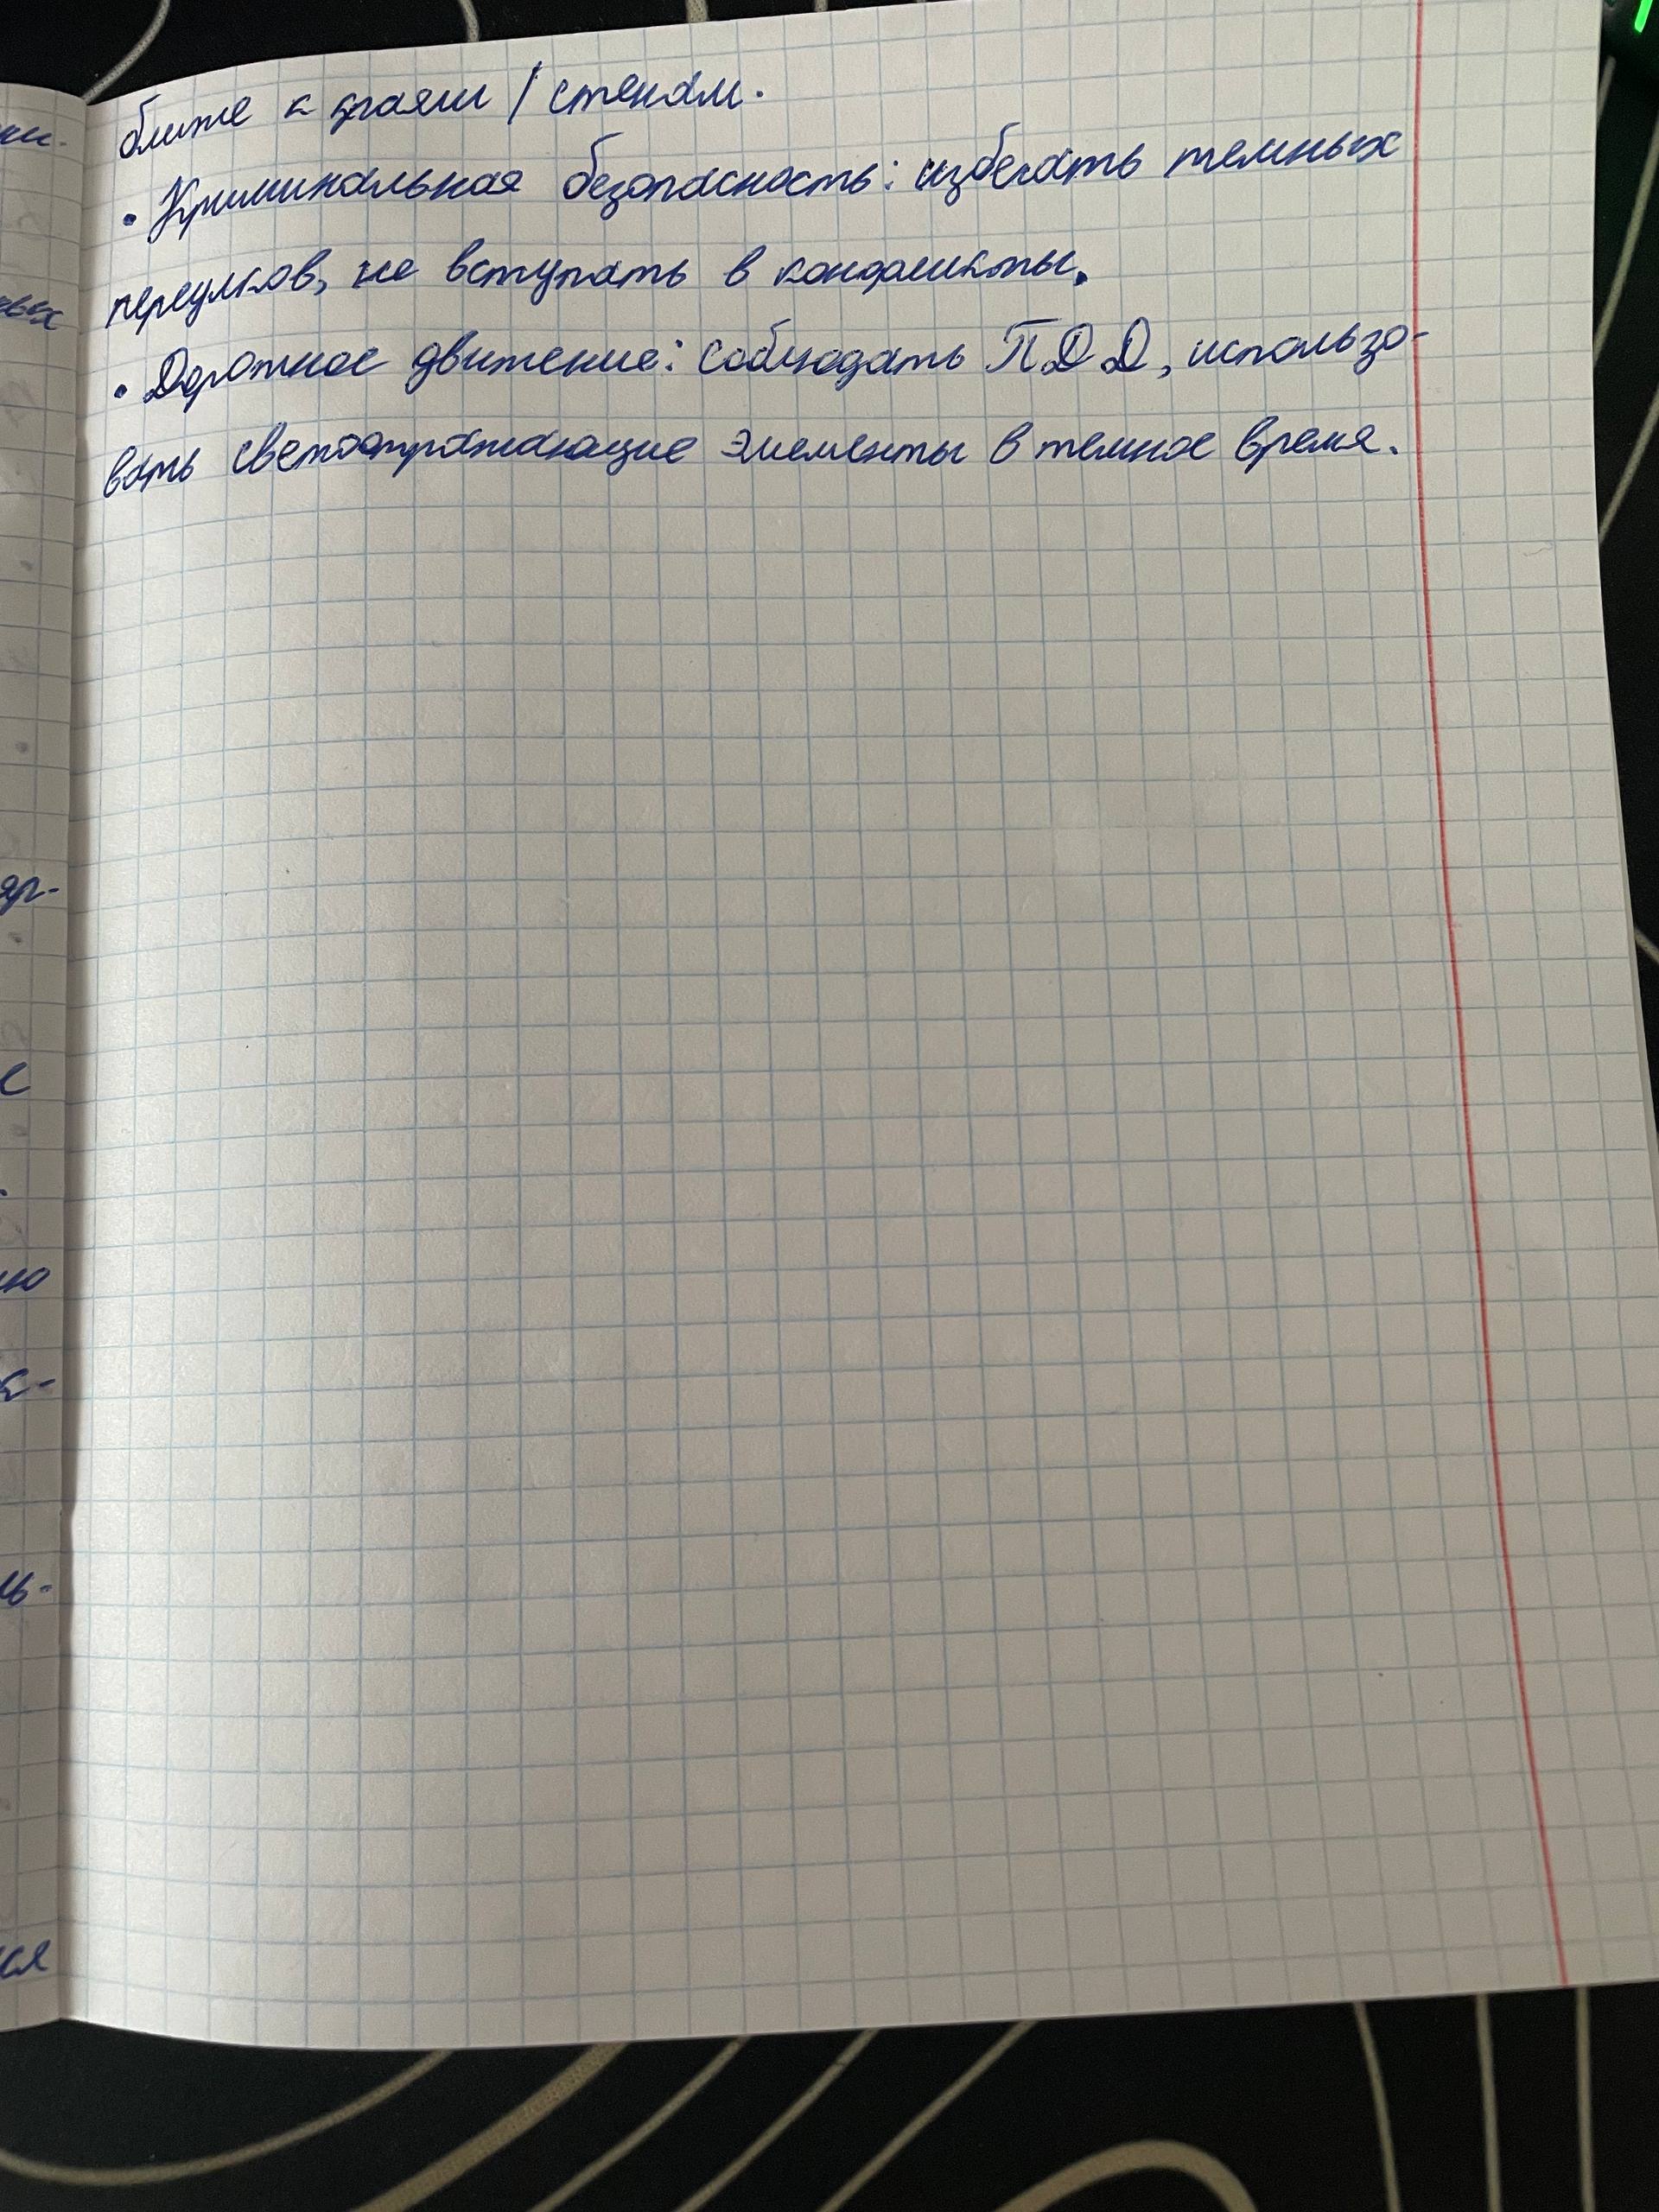 ближе к краям / стенам.
• Криминальная безопасность: избегать темных
переулков, не вступать в конфликты.
• Дорожное движение: соблюдать ПДД, использо-
вать светоотражающие элементы в темное время.